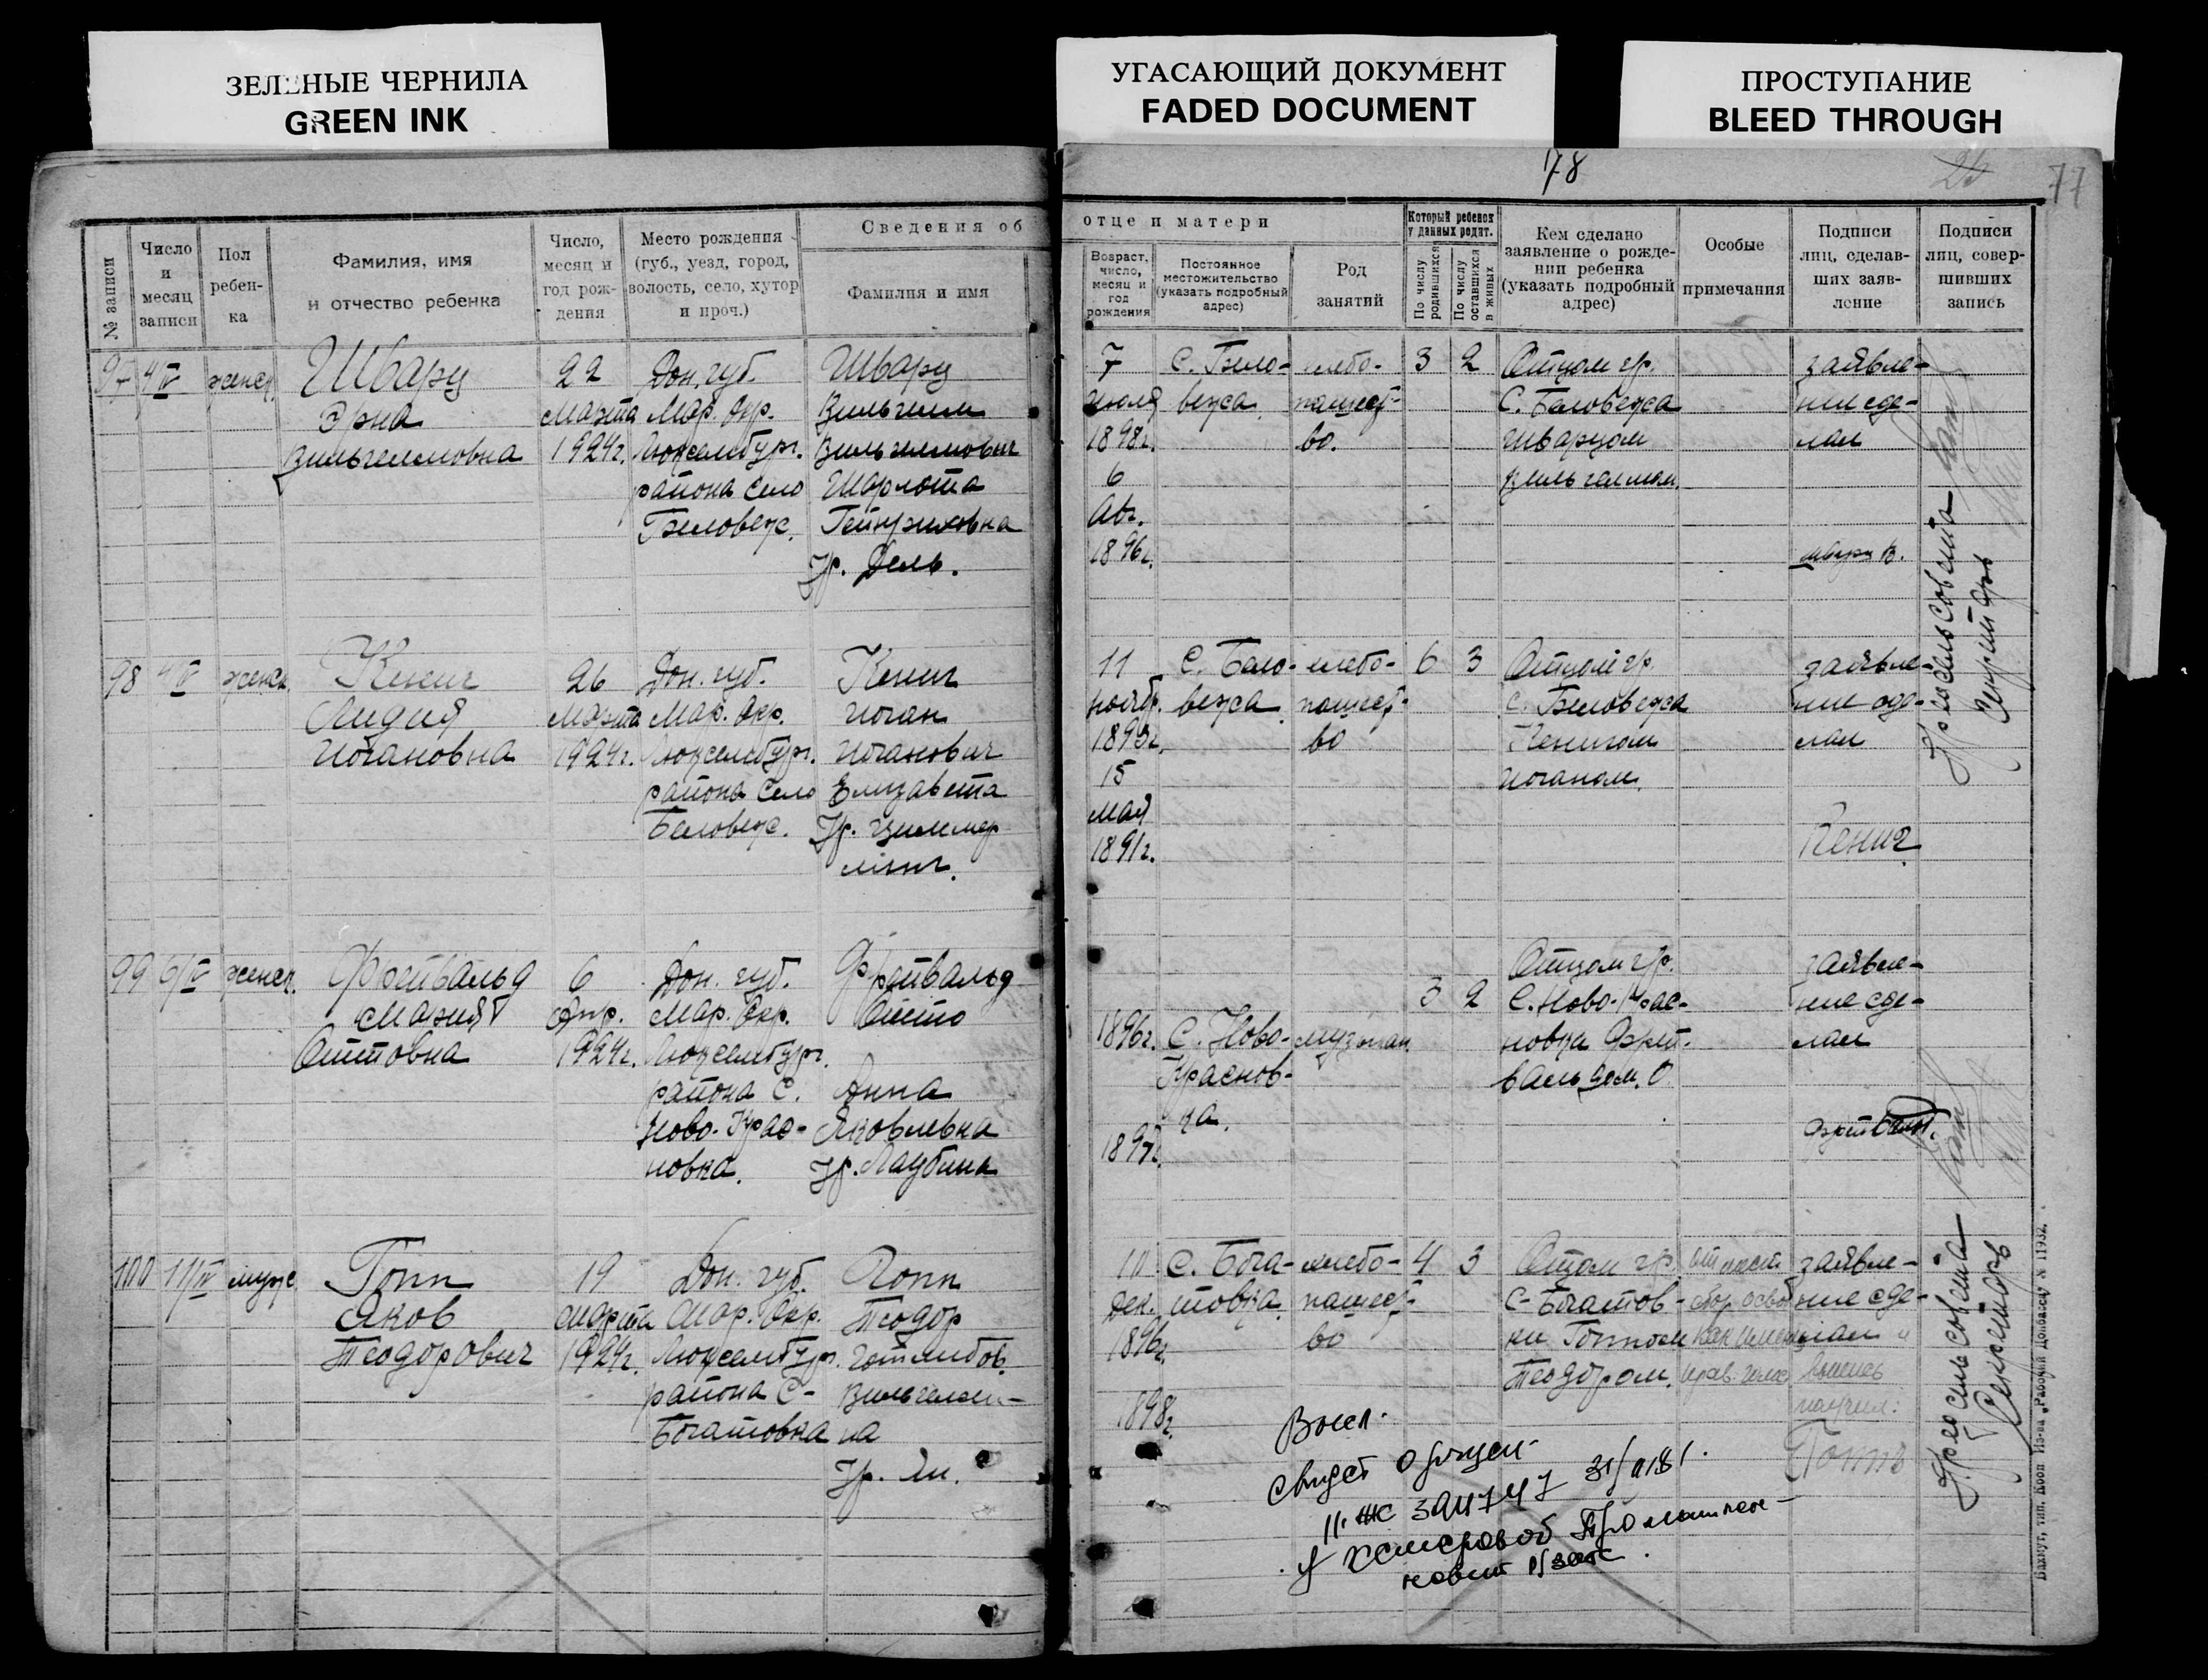 ЗЕЛЕНЫЕ ЧЕРНИЛА
GREEN INK
УГАСАЮЩИЙ ДОКУМЕНТ
FADED DOCUMENT
ПРОСТУПАНИЕ
BLEED THROUGH
78
77
№ записи
Число и месяц записи
Пол ребен-ка
Фамилия, имя и отчество ребенка
Число, месяц и год рож-дения
Место рождения (губ., уезд, город, волость, село, хутор и проч.)
Сведения об отце и матери
Фамилия и имя
Возраст, число, месяц и год рождения
Постоянное местожительство (указать подробный адрес)
Род занятий
Который ребенок у данных родит.
По числу родившихся
По числу оставшихся в живых
Кем сделано заявление о рожде-нии ребенка (указать подробный адрес)
Особые примечания
Подписи лиц, сделав-ших заяв-ление
Подписи лиц, совер-шивших запись
97 4/IV женск.
Шварц
Эрна
Вильгелмовна
22
марта
1924г.
Дон. губ.
Мар. Окр.
Люксембург.
района село
Беловеж.
Шварц
Вильгелм
Вильгелмович
Шарлота
Гейнриховна
Ур. Дель.
7
июля
1898г.
6
Авг.
1896г.
С. Бело-
вежа
хлебо-
пашест-
во.
3 2
Отцом гр.
С. Беловежа
Шварцом
Вильгелмом.
заявле-
ние сде-
лал
Шварц В.
98 4/IV женск.
Кениг
Лидия
Иогановна
26
марта
1924г.
Дон. губ.
Мар. Окр.
Люксембург.
района село
Беловеж.
Кениг
Иоган
Иоганович
Елизавета
Ур. Циммер
11
ноябр.
15
мая
1891г.
С. Бело-
вежа
хлебо-
пашест-
во
6 3
Отцом гр.
С. Беловежа
Кенигом
Иоганом.
заявле-
ние сде-
лал
Кениг
Предсельсовета
Секретарь
99 6/IV женск.
Фрейвальд
Мария
Оттовна
6
Апр.
1924г.
Дон. губ.
Мар. Окр.
Люксембург.
района С.
Ново-Крас-
новка.
Фрейвальд
Отто
Анна
Яковлевна
Ур. Лаубина
1896г.
1897г.
С. Ново-
Краснов-
ка.
музыкан.
3 2
Отцом гр.
С. Ново-Крас-
новка Фрей-
вальдом. О
заявле-
ние сде-
лал
100 11/IV мужс.
Гопп
Яков
Теодорович
19
марта
1924г.
Дон. губ.
Мар. Окр.
Люксембург.
района С-
Богатовка
Гопп
Теодор
Готлибов.
Вильгелми-
на
Ур. Ли.
10
Дек.
1896г.
1898г.
С. Бога-
товка
хлебо-
пашест-
во
4 3
Отцом гр.
С-Богатов-
ки Гоппом
Теодором.
заявле-
ние сде-
лал и
получил:
Гоппъ
Предсельсовета
Секретарь
свидет о рожден
II-ЖС 394747
г Кемерово
Бахмут, тип. Кооп Из-ва „Рабочий Донбассу" № 11932.